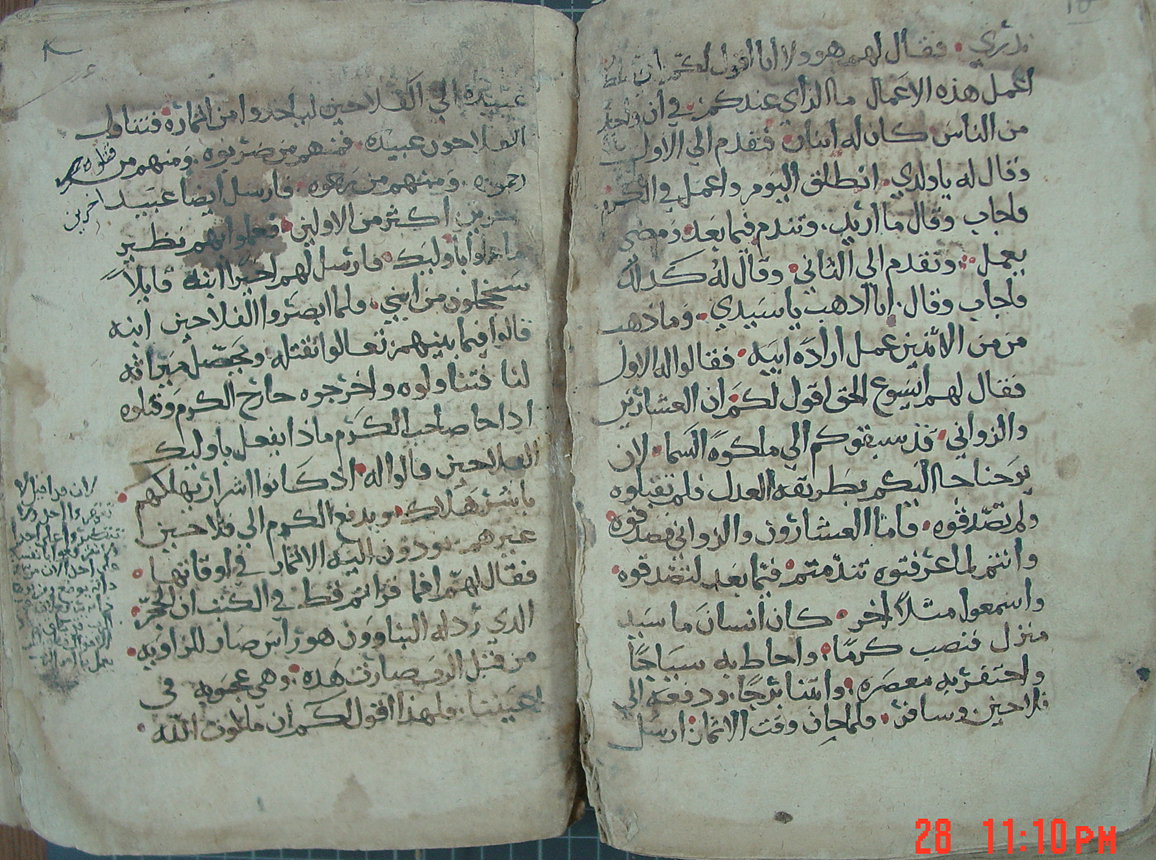 ندري فقال لهم هو ولا انا اقول لكم
اعمل هذه الاعمال ما الراي عندكم في ان واحد
من الناس كان له ابنان فتقدم الي الاول
وقال له يا ولدي انطلق اليوم واعمل في الكرم
فاجاب وقال ما اريد وتندم فيما بعد ومضي
يعمل وتقدم الي الثاني وقال له كذلك
فاجاب وقال انا اذهب يا سيدي وما ذهب
من من الاثنين عمل ارادة ابيه فقالوا له الاول
فقال لهم ايسوع الحق اقول لكم ان العشارين
والزواني قد سبقوكم الي ملكوة السما لان
يوحنا جا اليكم بطريقة العدل فلم تقبلوه
ولم تصدقوه فاما العشارون والزواني فصدقوه
وانتم لما عرفتوه تندمتم فيما بعد لتصدقوه
واسمعوا مثلا اخر كان انسان ما سيد
منزل فنصب كرما واحاط به سياجا
واحتفر به معصره وابتنا برجا ودفعه الي
فلاحين وسافر فلما حان وقت الاثمار ارسل
عبيده الي الفلاحين لياخدوا من اثماره فتناول
الفلاحون عبيده فمنهم من ضربوه ومنهم من قتلوه
ومنهم من فارسل ايضا عبيد اخرين
اكثر من الاولين فعلوا بهم نظير
ما عملوا باوليك فارسل لهم اخيرا ابنه قايلا
سيخجلون من ابني فلما ابصروا الفلاحين ابنه
قالوا فيما بينهم تعالوا نقتله ويحصل ميراثه
لنا فتناولوه واخرجوه خارج الكرم وقتلوه
اذا جا صاحب الكرم ماذا يفعل باوليك
الفلاحين قالوا له اذ كانوا اشرار يهلكهم
باشر هلاك ويدفع الكرم الي فلاحين
غيرهم يودون اليه الاثمار في اوقاتها
فقال لهم افما قراتم قط في الكتب ان الحجر
الذي رذله البناوون هو راس صار للزاويه
من قبل الرب صارت هذه وهي عجوبه في
اعيننا ولهذا اقول لكم ان ملكوت الله
28 11:10 PM